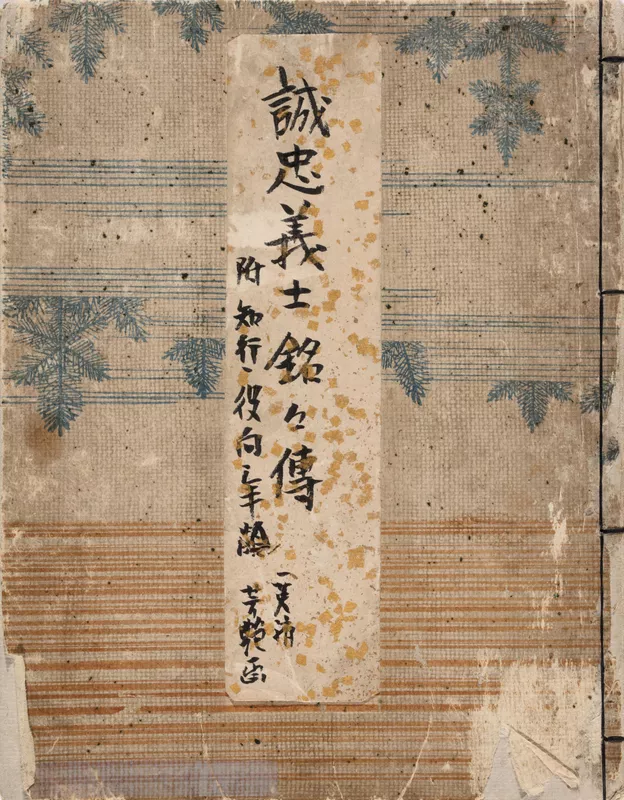 誠忠義士銘々傳
附知行、役向、年齢
一英齋
芳艶画